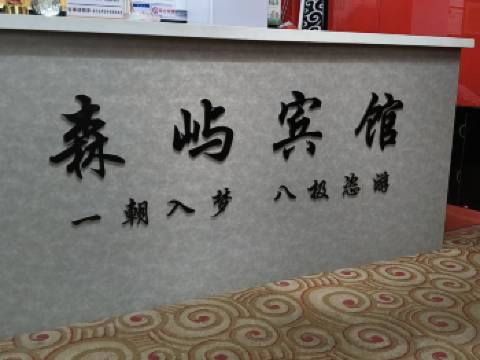 森屿宾馆
一朝入梦 八极悠游